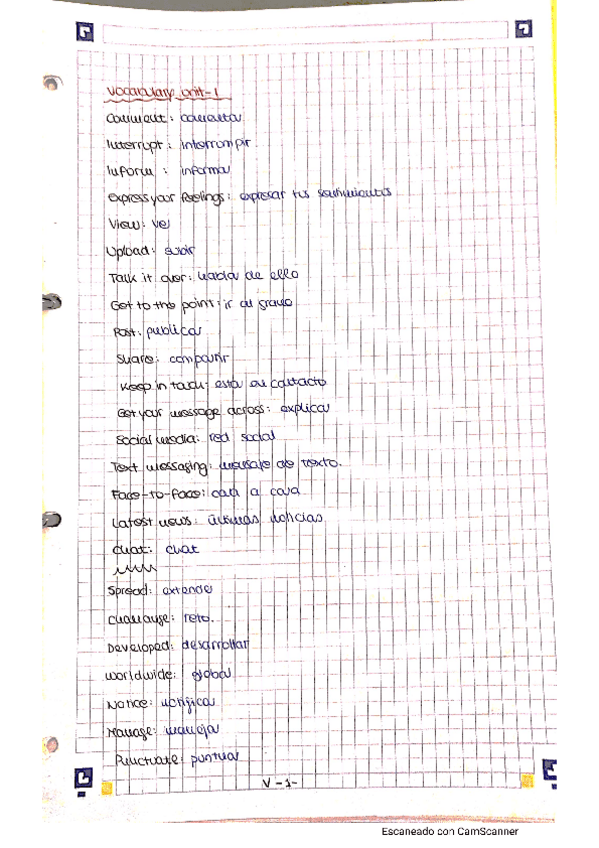 Vocabulary unit-1
Comment: comentar
Interrupt: interrompir
Inform: informar
Express your feelings: expresar tus sentimientos
View: ver
Upload: subir
Talk it over: habla de ello
Get to the point: ir al grano
Post: publicar
Share: compartir
Keep in touch: estar en contacto
Get your message across: explicar
Social media: red social
Text messaging: mensaje de texto.
Face-to-face: cara a cara
Latest news: últimas noticias
Chat: chat
Spread: extender
Challenge: reto.
Developed: desarrollar
Worldwide: global
Notice: notificar
Manage: manejar
Punctuate: puntuar
V-1-
Escaneado con CamScanner